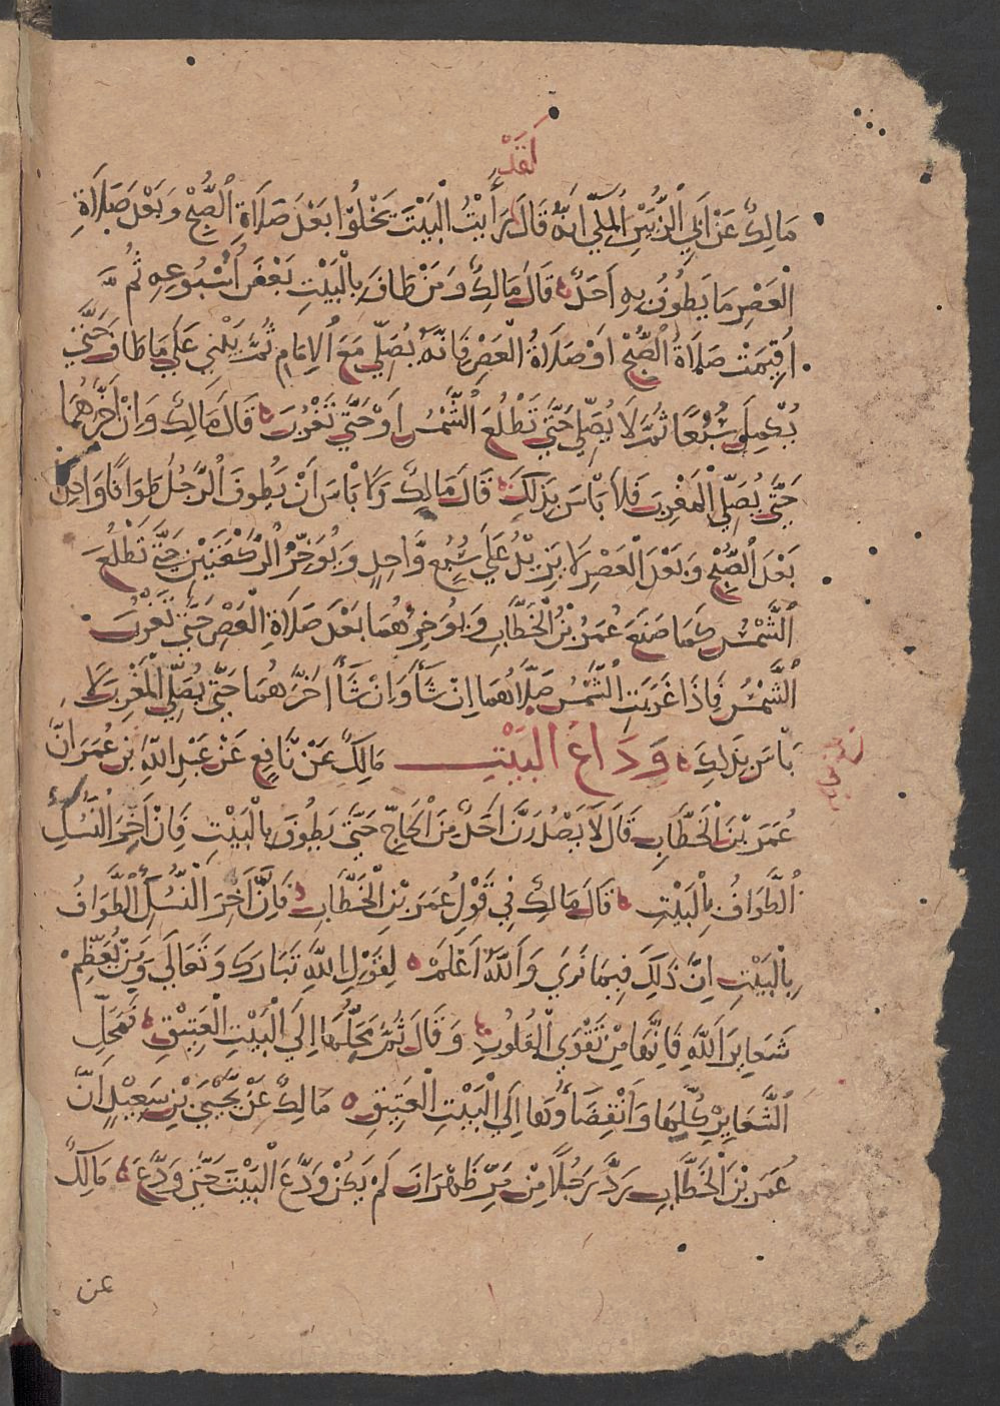 لَقَدْ
مَالِكٌ عَنْ أَبِي الزُّبَيْرِ الْمَكِّيِّ اَنَّهُ قَالَ رَأَيْتُ الْبَيْتَ يَخْلُوا بَعْدَ صَلَاةِ الصُّبْحِ وَبَعْدَ صَلَاةِ
الْعَصْرِ مَا يَطُوفُ بِهِ اَحَدٌ قَالَ مَالِكٌ وَمَنْ طَافَ بِالْبَيْتِ بَعْضَ أُسْبُوعِهِ ثُمَّ
اُقِيمَتْ صَلَاةُ الصُّبْحِ اَوْ صَلَاةُ الْعَصْرِ فَاِنَّهُ يُصَلِّي مَعَ الْاِمَامِ ثُمَّ يَبْنِي عَلَي مَا طَافَ حَتَّي
يُكْمِلَ سُبْعًا ثُمَّ لَا يُصَلِّي حَتَّي تَطْلُعَ الشَّمْسُ اَوْ حَتَّي تَغْرُبَ قَالَ مَالِكٌ وَاِنْ اَخَّرَهُمَا
حَتَّي يُصَلِّيَ الْمَغْرِبَ فَلَا بَاْسَ بِذَلِكَ قَالَ مَالِكٌ وَلَا بَاْسَ اَنْ يَطُوفَ الرَّجُلُ طَوَافًا وَاحِدًا
بَعْدَ الصُّبْحِ وَبَعْدَ الْعَصْرِ لَا يَزِيْدُ عَلَي سُبُعٍ وَّاحِدٍ وَيُوَخِّرُ الرَّكْعَتَيْنِ حَتَّي تَطْلُعَ
الشَّمْسُ كَمَا صَنَعَ عُمَرُ بْنُ الْخَطَّابِ وَيُوَخِّرُهُمَا بَعْدَ صَلَاةِ الْعَصْرِ حَتَّي تَغْرُبَ
الشَّمْسُ فَاِذَا غَرَبَتِ الشَّمْسُ صَلَّاهُمَا اِنْ شَاَ وَاِنْ شَاَ اَخَّرَهُمَا حَتَّي يُصَلِّيَ الْمَغْرِبَ لَا
بَاْسَ بِذَلِكَ وَدَاعُ الْبَيْتِ مَالِكٌ عَنْ نَّافِعٍ عَنْ عَبْدِ اللَّهِ بْنِ عُمَرَ اَنَّ
عُمَرَ بْنَ الْخَطَّابِ قَالَ لَا يَصْدُرَنَّ اَحَدٌ مِّنَ الْحَاجِّ حَتَّي يَطُوفَ بِالْبَيْتِ فَاِنَّ اَخِرَ النُّسُكِ
الطَّوَافُ بِالْبَيْتِ قَالَ مَالِكٌ فِي قَوْلِ عُمَرَ بْنِ الْخَطَّابِ فَاِنَّ اَخِرَ النُّسُكِ الطَّوَافُ
بِالْبَيْتِ اِنَّ ذَلِكَ فِيمَا نُرَي وَاللَّهُ اَعْلَمُ لِقَوْلِ اللَّهِ تَبَارَكَ وَتَعَالَي وَمَنْ يُّعَظِّمْ
شَعَايِرَ اللَّهِ فَاِنَّهَا مِنْ تَقْوَي الْقُلُوبِ وَقَالَ ثُمَّ مَحِلُّهَا اِلَي الْبَيْتِ الْعَتِيْقِ فَمَحِلُّ
الشَّعَايِرِ كُلِّهَا وَانْقِضَاؤُهَا اِلَي الْبَيْتِ الْعَتِيقِ مَالِكٌ عَنْ يَّحْيَي بْنِ سَعِيْدٍ اَنَّ
عُمَرَ بْنَ الْخَطَّابِ رَدَّ رَجُلًا مِّنْ مَرِّ ظَهْرَانَ لَمْ يَكُنْ وَدَّعَ الْبَيْتَ حَتَّي وَدَّعَ مَالِكٌ
عن